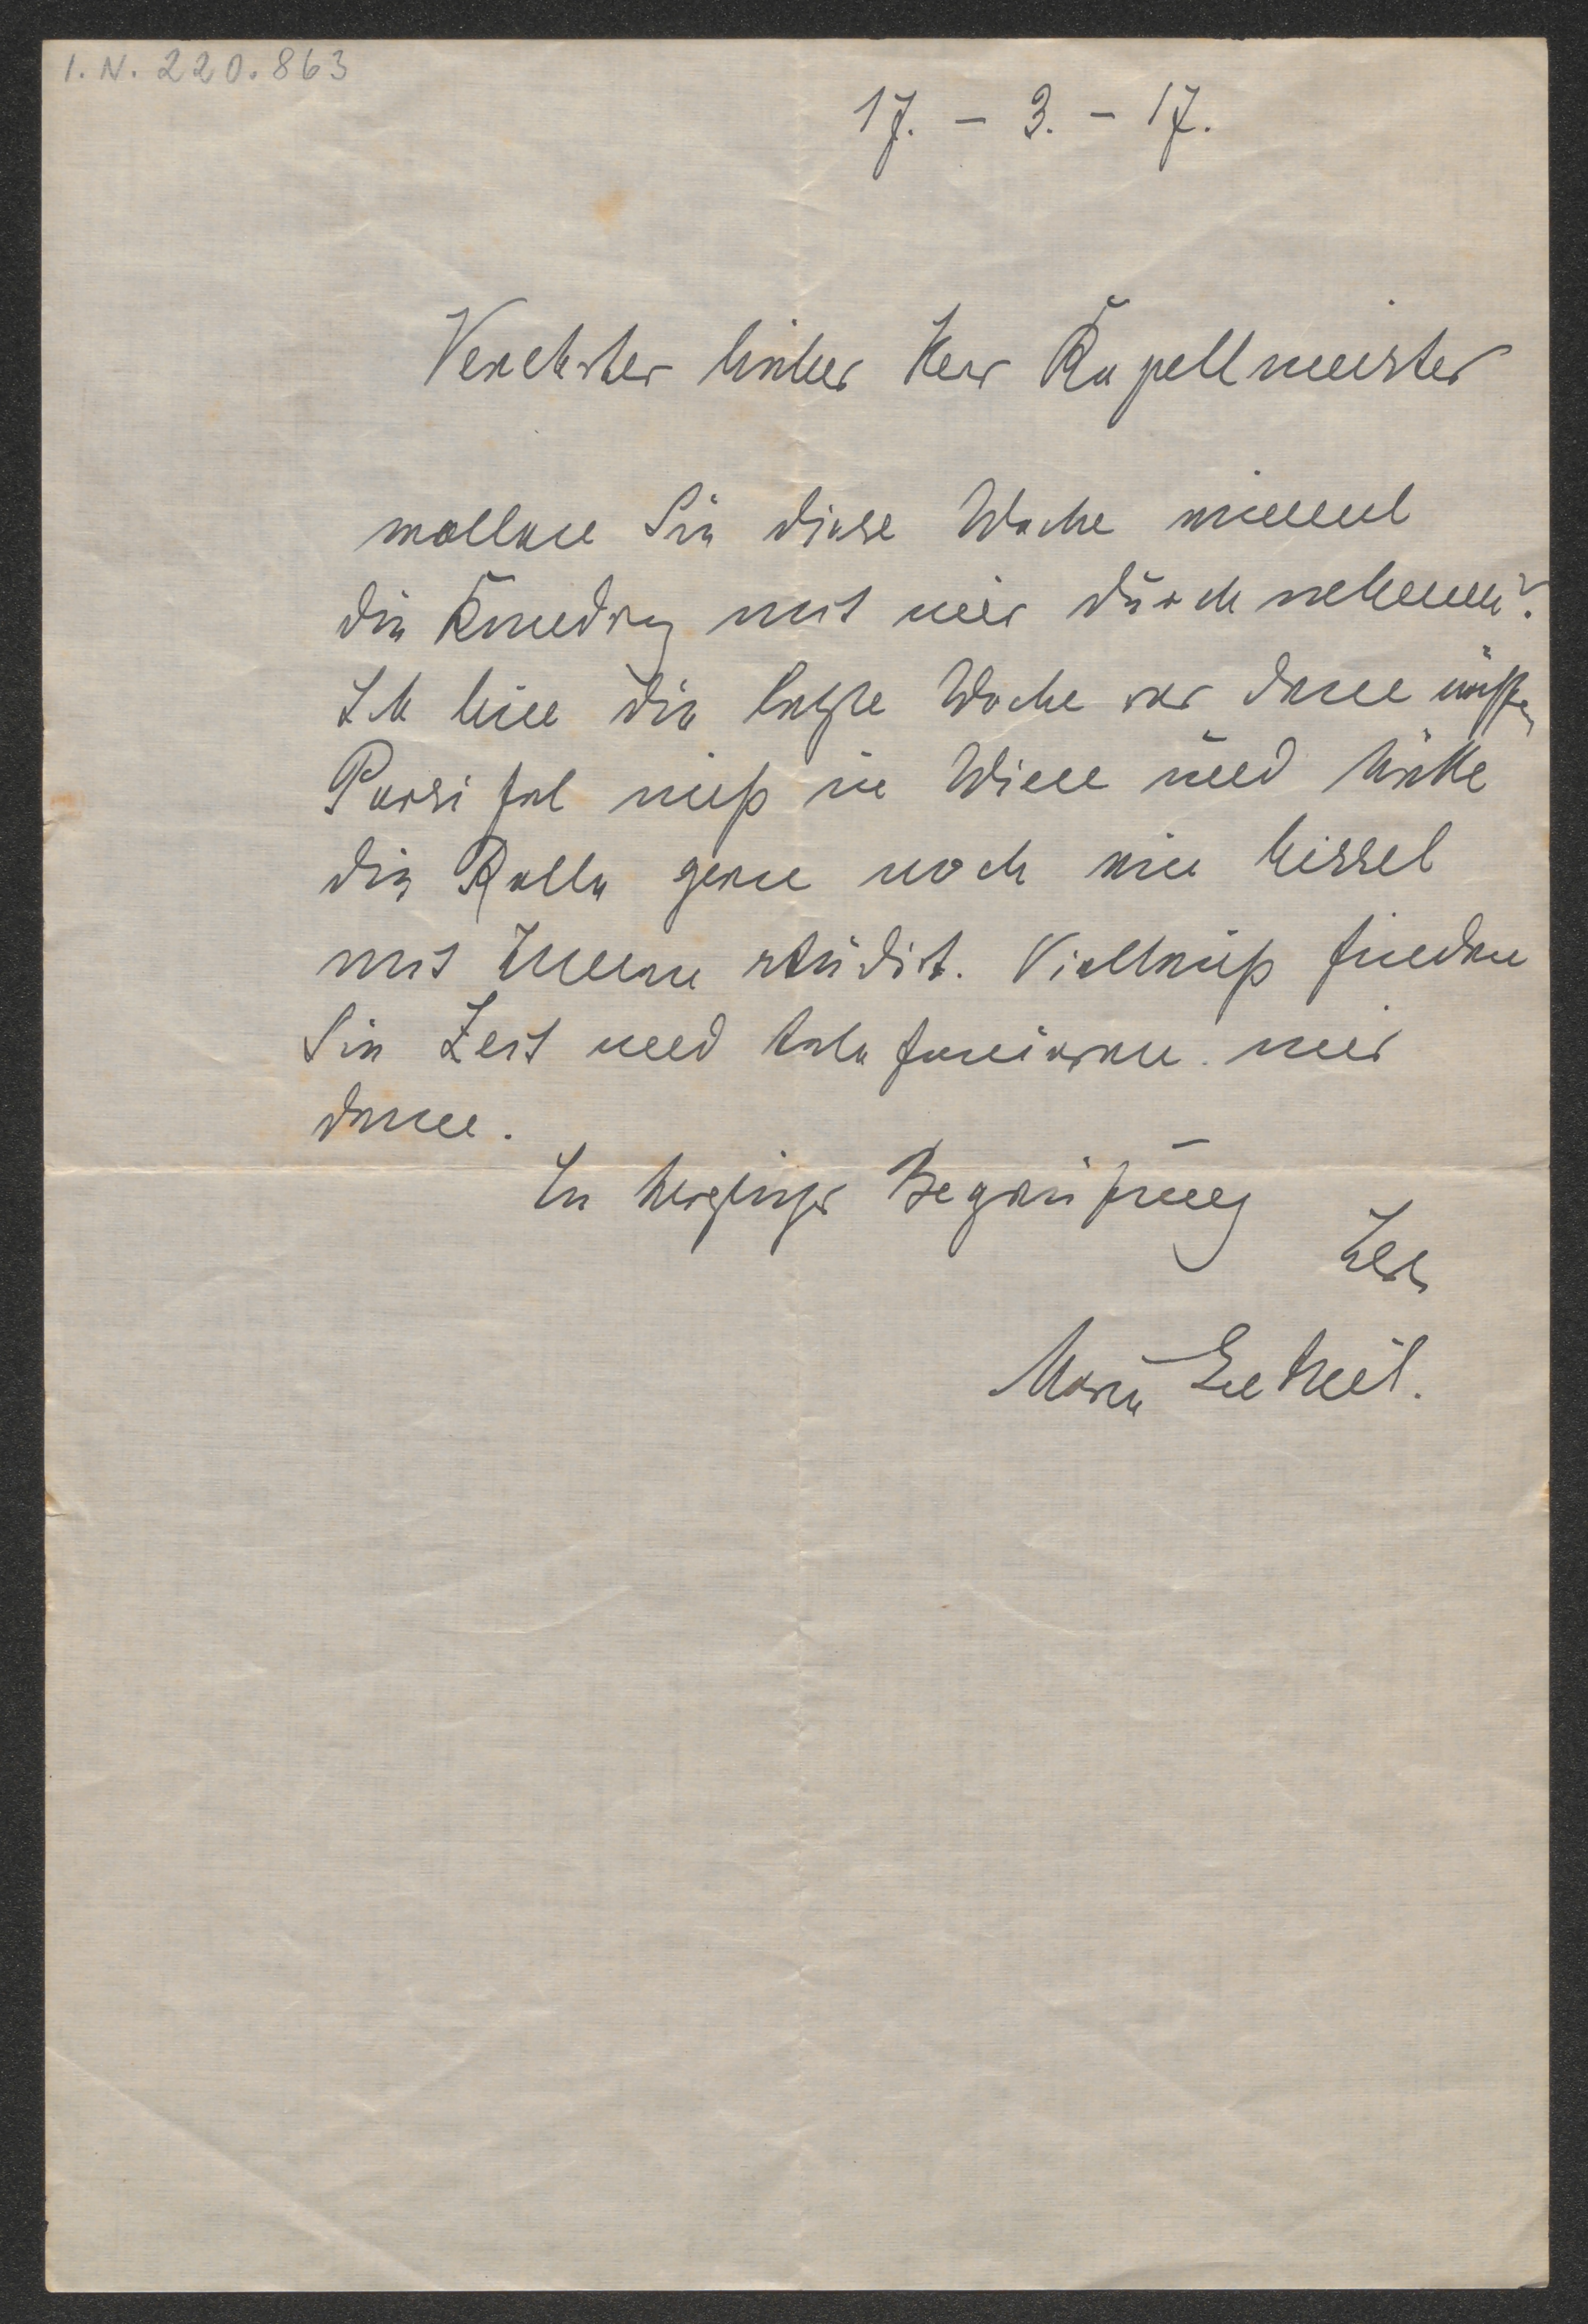 I.N. 220.863
17. – 3. – 17.
Verehrter lieber Herr Kapellmeister
wollen Sie diese Woche einmal
die Kundry mit mir durchnehmen?
Ich bin die letzte Woche vor dem
Parsifal nicht in Wien und hätte
die Rolle gerne noch ein bissel
mit Ihnen studirt. Vielleicht finden
Sie Zeit und telefonieren mir
dann.
In herzlicher Begrüßung
Ihre
Marie Gutheil.